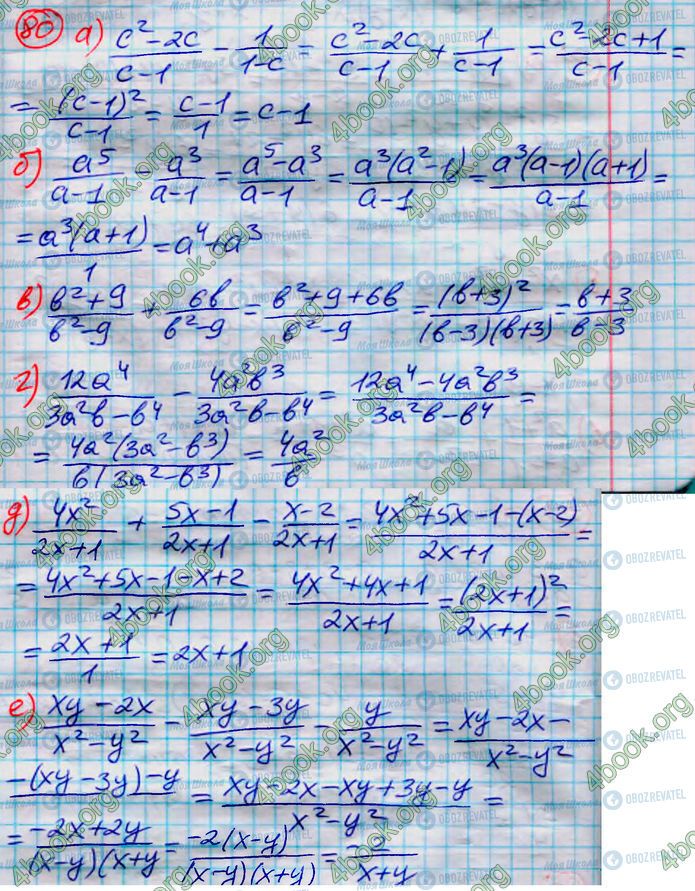 80 а) (c² – 2c)/(c – 1) – 1/(1 – c) = (c² – 2c)/(c – 1) + 1/(c – 1) = (c² – 2c + 1)/(c – 1) =
= (c – 1)²/(c – 1) = (c – 1)/1 = c – 1
б) a⁵/(a – 1) – a³/(a – 1) = (a⁵ – a³)/(a – 1) = a³(a² – 1)/(a – 1) = a³(a – 1)(a + 1)/(a – 1) =
= a³(a + 1)/1 = a⁴ + a³
в) (b² + 9)/(b² – 9) + 6b/(b² – 9) = (b² + 9 + 6b)/(b² – 9) = (b + 3)²/((b – 3)(b + 3)) = (b + 3)/(b – 3)
г) 12a⁴/(3a²b – b⁴) – 4a²b³/(3a²b – b⁴) = (12a⁴ – 4a²b³)/(3a²b – b⁴) =
= 4a²(3a² – b³)/(b(3a² – b³)) = 4a²/b
д) 4x²/(2x + 1) + (5x – 1)/(2x + 1) – (x – 2)/(2x + 1) = (4x² + 5x – 1 – (x – 2))/(2x + 1) =
= (4x² + 5x – 1 – x + 2)/(2x + 1) = (4x² + 4x + 1)/(2x + 1) = (2x + 1)²/(2x + 1) =
= (2x + 1)/1 = 2x + 1
е) (xy – 2x)/(x² – y²) – (xy – 3y)/(x² – y²) – y/(x² – y²) = (xy – 2x –)/(x² – y²)
–(xy – 3y) – y = (xy – 2x – xy + 3y – y)/(x² – y²) =
= (–2x + 2y)/((x – y)(x + y) = –2(x – y)/((x – y)(x + y)) = –2/(x + y)
4book.org
Моя Школа
OBOZREVATEL